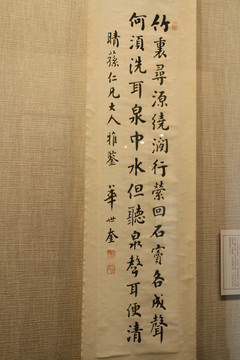 竹裏尋源繞澗行縈回石竇各成聲
何須洗耳泉中水但聽泉聲耳便清
晴蓀仁兄大人雅鉴
華世奎